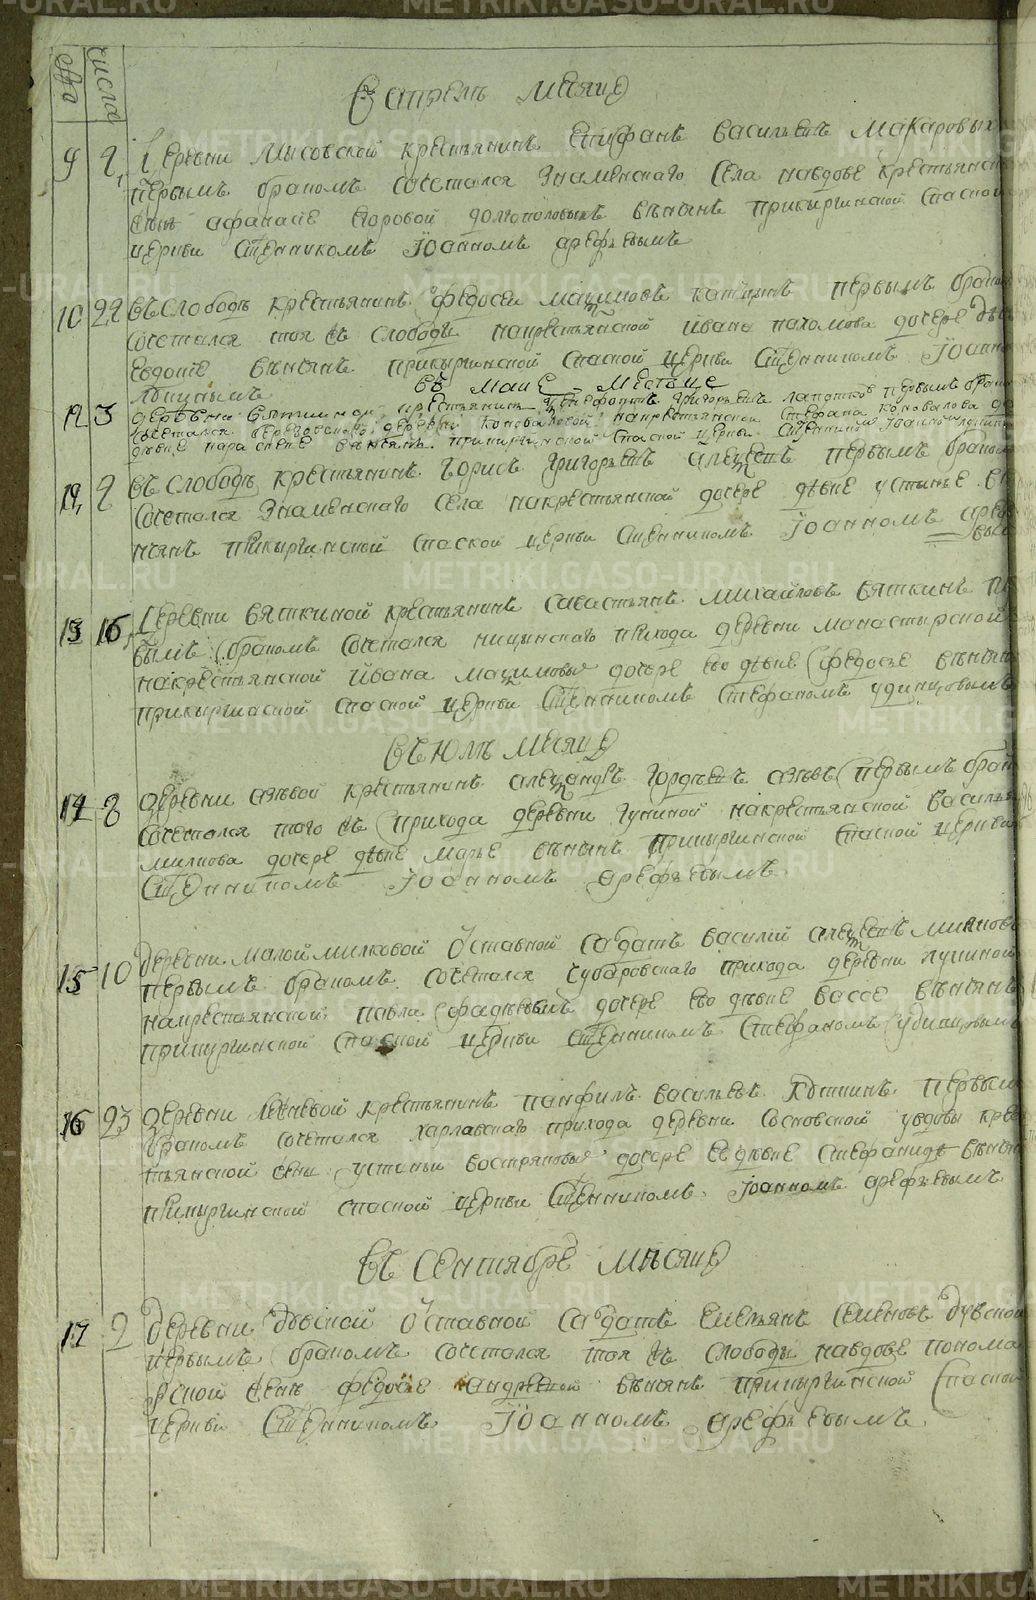 числа
ево
В апреле месяце
9 2 Деревни Мысовской крестьянинъ Епифанъ Васильевъ Макаровых
первымъ бракомъ сочетался Знаменскаго Села на вдове крестьянской
жене афанасье Егоровой долгополовыхъ венчанъ прикыргинской спаской
церкви священникомъ Иоанномъ арефьевымъ
10 22 въ слободе крестьянинъ федосей максимовъ первымъ браком
сочетался тоя жъ слободы на крестьянской ивана пахомова дочере девке
Евдокие венчанъ прикыргинской спаской церкви священникомъ Иоанном
въ мае месяце
12 3 деревни вяткиной крестьянинъ григорьевъ лаптевъ первымъ браком
сочетался деревни коноваловой на крестьянской стефана коновалова
девке парасковье венчанъ прикыргинской спаской церкви священникомъ
2 въ слободе крестьянинъ борисъ григорьевъ алексеевъ первымъ браком
сочетался Знаменскаго села на крестьянской дочере девке устинье вен
чанъ прикыргинской спаской церкви священникомъ Иоанномъ арефье
вым
13 16 Деревни вяткиной крестьянинъ савастьянъ михайловъ вяткинъ пер
вымъ бракомъ сочетался ницынскаго прихода деревни манастырской
на крестьянской ивана максимовыхъ дочере ево девке федосье венчанъ
прикыргинской спаской церкви священникомъ стефаномъ удинцовымъ
въ июле месяце
14 8 Деревни азевой крестьянинъ александръ гордеевъ азевъ первымъ брак
сочетался того жъ прихода деревни гуниной на крестьянской василья
милкова дочере девке марье венчанъ прикыргинской спаской церкви
священникомъ Иоанномъ арефьевымъ
15 10 деревни малой милковой отставной салдатъ василий алексеевъ милковъ
первымъ бракомъ сочетался чубаровскаго прихода деревни луниной
на крестьянской павла фадеевыхъ дочере ево девке вассе венчанъ
прикыргинской спаской церкви священникомъ стефаномъ удинцовымъ
16 23 деревни крестьянинъ панфилъ васильевъ первым
бракомъ сочетался харловскаго прихода деревни сосновской у вдовы крес
тьянской жены устиньи дочере ее девке стефаниде венчан
прикыргинской спаской церкви священникомъ Иоанномъ арефьевымъ
Въ сентябре месяце
17 2 Деревни дуевской отставной салдатъ емельянъ семеновъ дуевской
первымъ бракомъ сочетался тоя жъ слободы на вдове понома
рской жене федосье андреевой венчанъ прикыргинской спаской
церкви священникомъ Иоанномъ арефьевымъ
METRIKI.GASO-URAL.RU